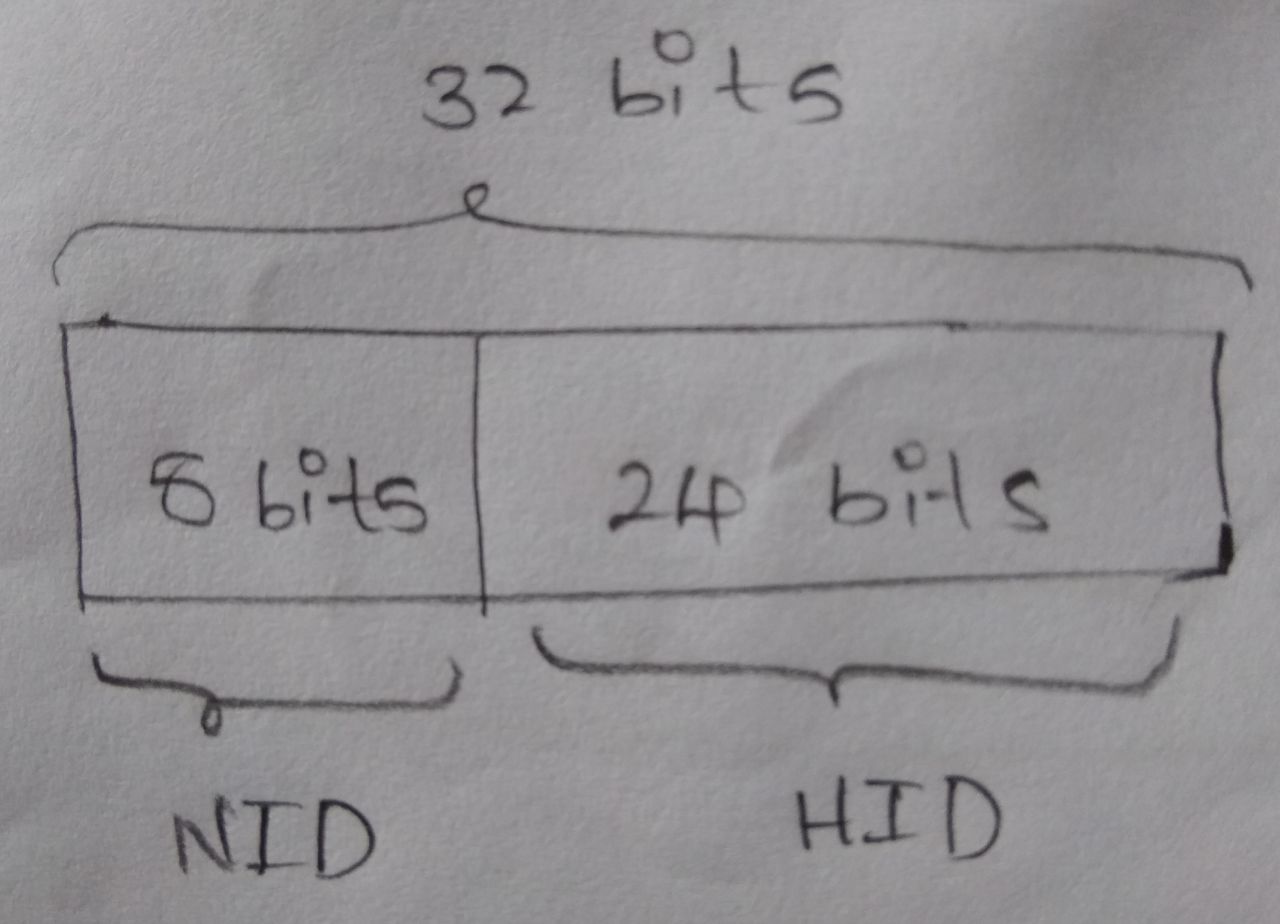 32 bits
8 bits 24 bits
NID HID